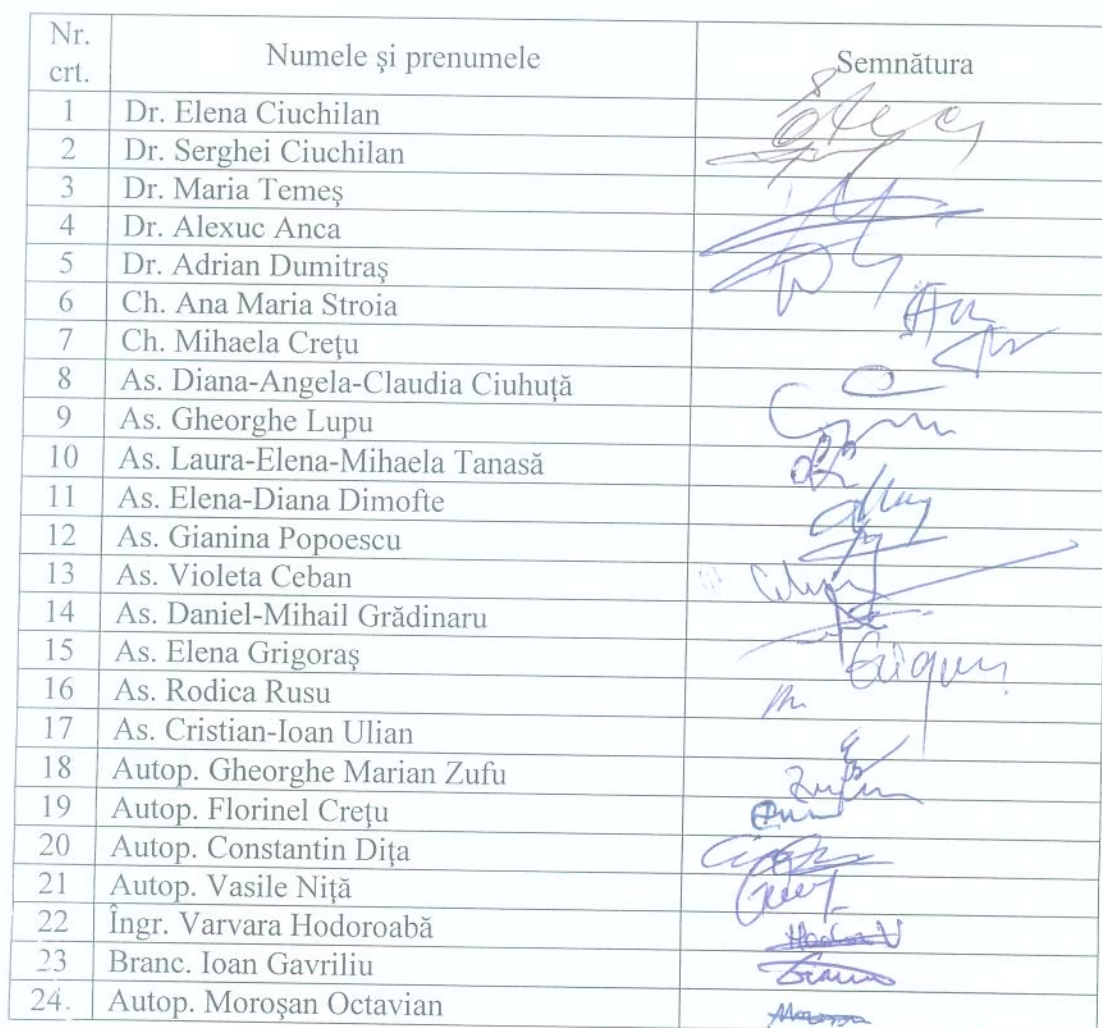 Nr. crt. Numele şi prenumele Semnătura
1 Dr. Elena Ciuchilan
2 Dr. Serghei Ciuchilan
3 Dr. Maria Temeş
4 Dr. Alexuc Anca
5 Dr. Adrian Dumitraş
6 Ch. Ana Maria Stroia
7 Ch. Mihaela Creţu
8 As. Diana-Angela-Claudia Ciuhuţă
9 As. Gheorghe Lupu
10 As. Laura-Elena-Mihaela Tanasă
11 As. Elena-Diana Dimofte
12 As. Gianina Popoescu
13 As. Violeta Ceban
14 As. Daniel-Mihail Grădinaru
15 As. Elena Grigoraş
16 As. Rodica Rusu
17 As. Cristian-Ioan Ulian
18 Autop. Gheorghe Marian Zufu
19 Autop. Florinel Creţu
20 Autop. Constantin Diţa
21 Autop. Vasile Niţă
22 Îngr. Varvara Hodoroabă
23 Branc. Ioan Gavriliu
24. Autop. Moroşan Octavian